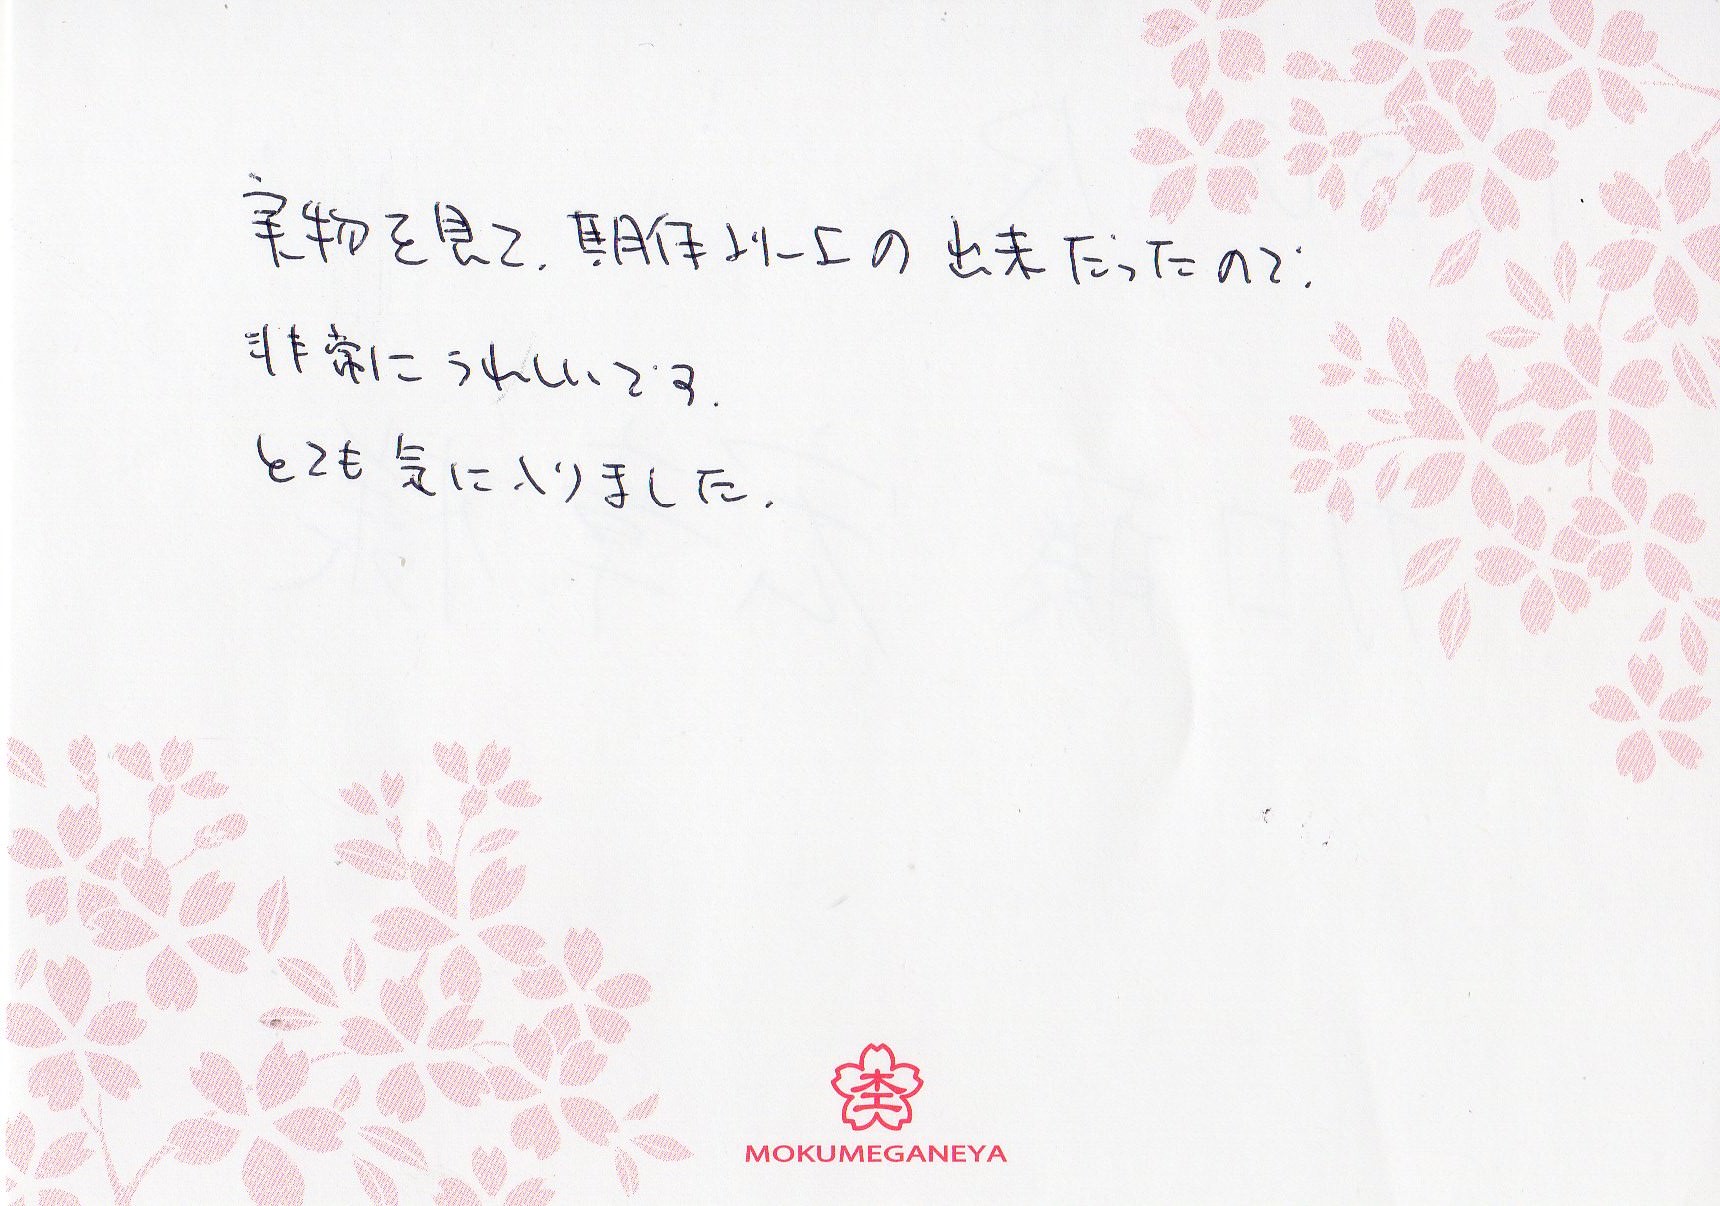 実物を見て、期待以上の出来だったので、
非常にうれしいです。
とても気に入りました。
MOKUMEGANEYA